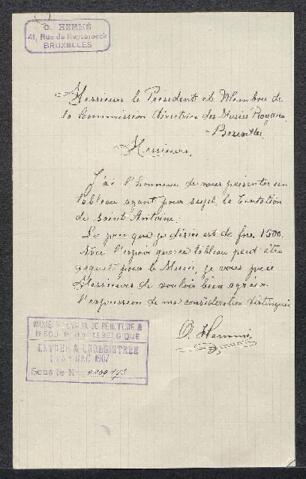 O. HERMÉ
41, Rue de Ruysbroeck
BRUXELLES
Messieurs le President et Membres de
la Commission directrice des Musées Royaux
Bruxelles
Messieurs,
J'ai l'honneur de vous présenter un
tableau ayant pour sujet la Tentation
de Saint Antoine.
Le prix que je désire est de frs 1500.
Avec l'espoir que ce tableau peut être
pour le Musée, je vous prie
Messieurs de vouloir bien agréer
l'expression de ma considération distinguée
O.
MUSÉES ROYAUX DE PEINTURE &
DE SCULPTURE DE BELGIQUE
ENTRÉE & ENREGISTRÉE
DEC 1907
Sous le N°